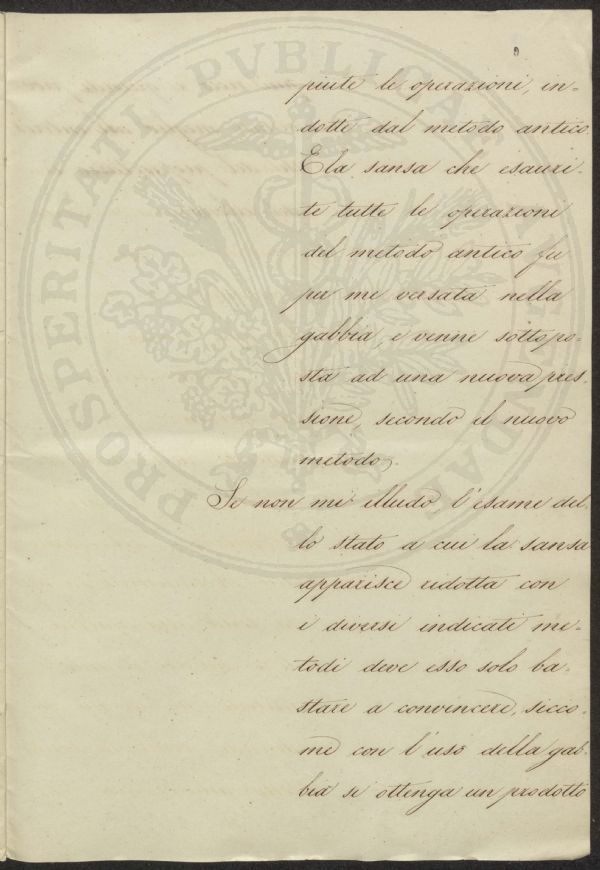 9
piute le operazioni, in-
dotte dal metodo antico.
E la sansa che esauri-
te tutte le operazioni
del metodo antico fu
per me versata nella
gabbia, e venne sottopo-
sta ad una nuova pres-
sione, secondo il nuovo
metodo.
Se non mi illudo, l'esame del-
lo stato a cui la sansa
apparisce ridotta con
i diversi indicati me-
todi deve esso solo ba-
stare a convincere, sicco-
me con l'uso della gab-
bia si ottenga un prodotto
PROSPERITATI PVBLICAE AVGENDAE